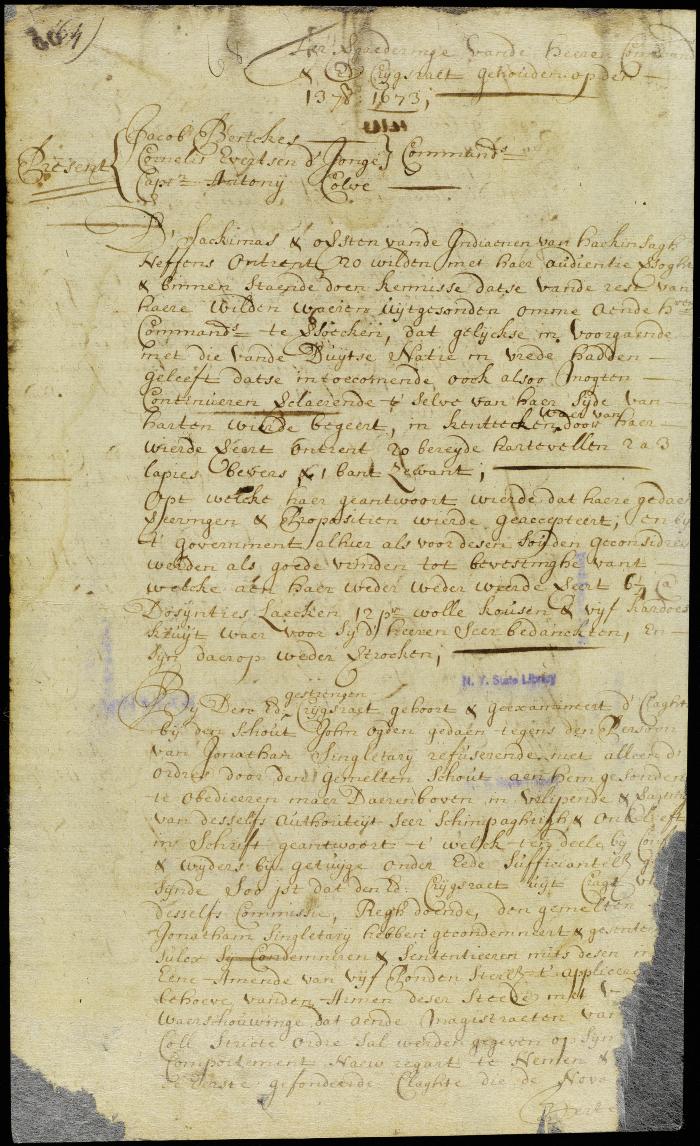 64)
68
Ter Vergaderinge vande heeren Command
& Ed Crijgsraet gehouden op den
13 7/8: 1673;
Present
Jacob Benckes
Cornelis Evertsen d' Jonge } Command:s
Capt:n Antonij Colve
D, Sackimas & oversten vande Indiaenen van hackinsagh
Neffens ontrent 20 wilden met haer audientie
& binnen staende doen kennisse datse vande rest van
haere wilden waeren uijtgesonden omme aende h:ren
Command:s te versoecken, dat gelijckse in voorgaende
met die vande Duijtse Natie in vrede hadden
geleeft datse in toecomende oock alsoo mogten
Continueren 't selve van haer sijde van
harten wierde begeert, in kentecken waer van door haer
wierde vereert ontrent 20 bereyde hartevellen 2 a 3
lapies bevers & 1 bant Zewant;
Opt welcke haer geantwoort wierde dat haere gedaene
vereringen & Propositien wierde geaccepteert; en bij
't government alhier als voordesen souden geconsidereert
werden als goede vrinden tot bevestinghe vant
welcke aen haer weder weder weerde vereert 6
Dosynties Laecken 12 p:r wolle kousen & vijf kardoes
kruijt waer voor sij d' heeren seer bedanckten, en
sijn daerop weder vertrocken;
N. Y. State Library
By Den Ed: gestrengen Crijgsraet gehoort & geexamineert d' Claghte
bij den Schout John ogden gedaen tegens den Persoon
van Jonathan Singletary refuserende niet alleen d'
ordres door den gemelten Schout aen hem gesonden
te obedieeren maer Daerenboven in vilipende &
van desselfs Authoriteyt seer schimpaghtigh &
in Schrift geantwoort 't welck ten deele bij
& wijders bij getuijge onder Eede sufficiantelijk
sijnde Soo ist dat den Ed: Crijgsraet uijt Cragt van
desselfs Commissie, Regh doende, den gemelten
Jonatham Singletary hebben gecondemneert &
sulcx Sij Condemneren & Sententieeren mits desen in
Eene Amende van vijf Ponden Sterl:x t' appliceeren
behoeve vanden Armen deser Stede met
Waerschouwinge dat aende Magistraeten van
Coll Stricte ordre sal werden gegeven op Syn
Comportement Nauw regart te Nemen &
de eerste gefondeerde Claghte die de